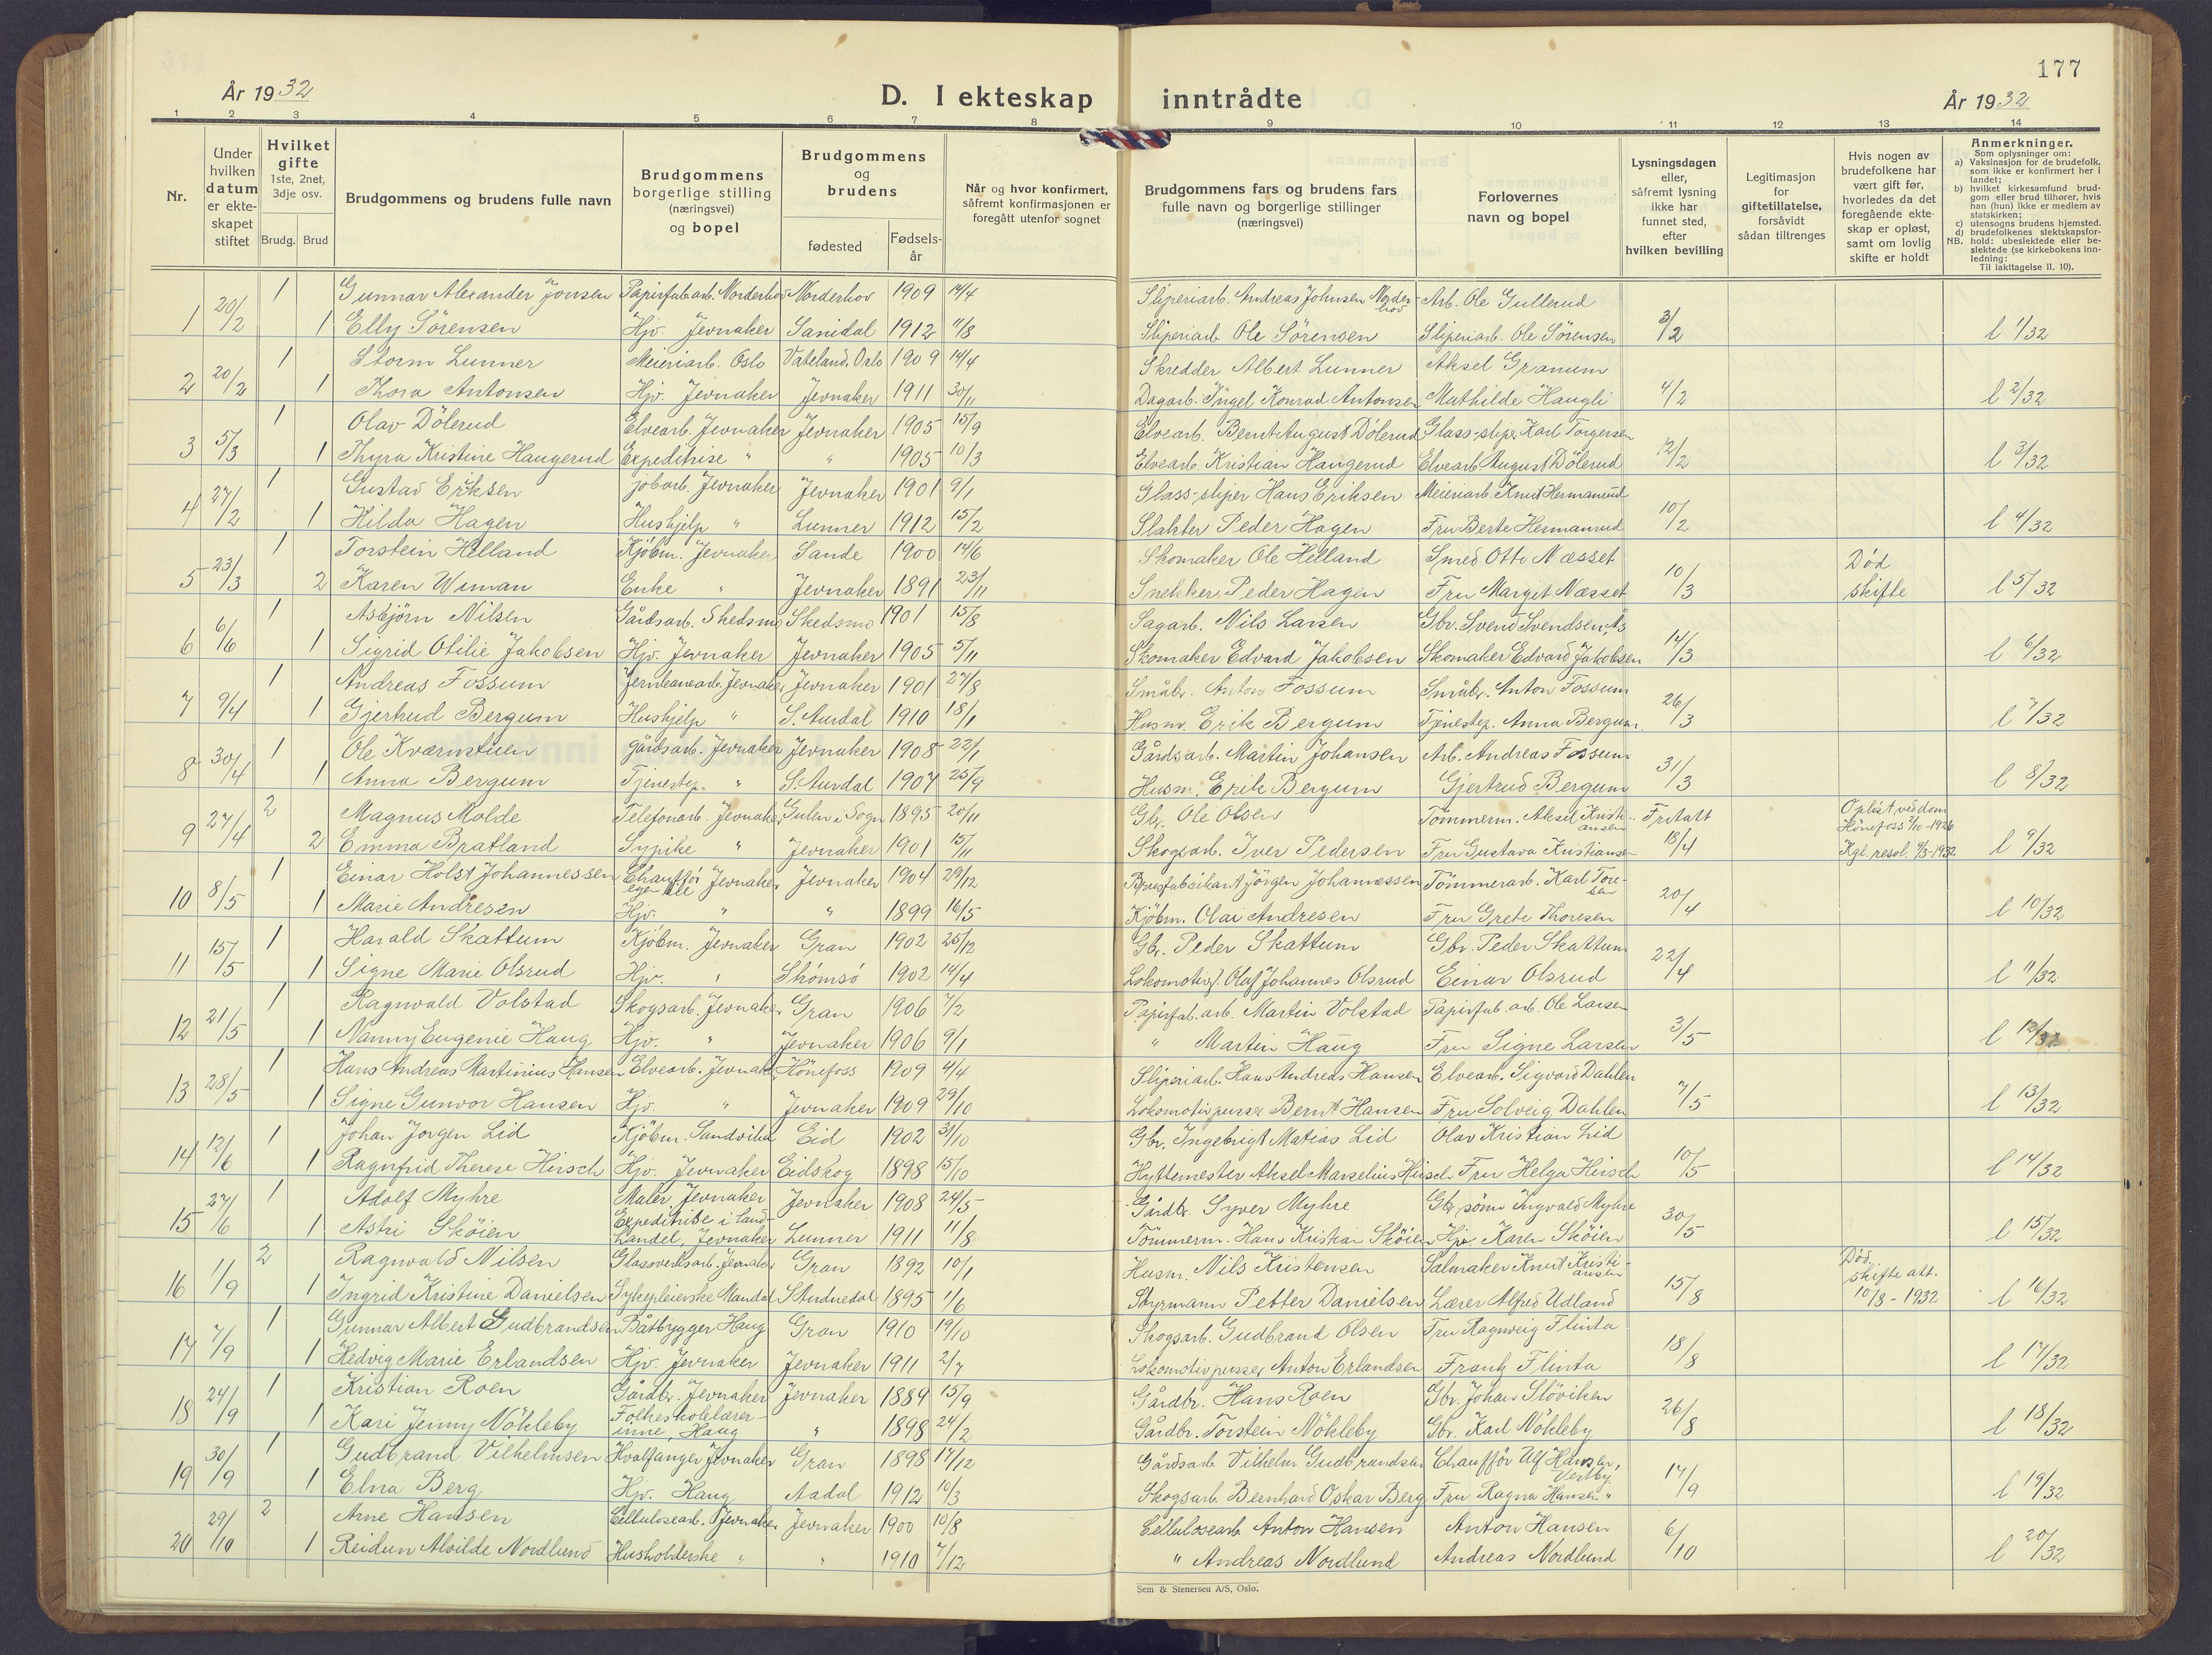 177
År 1932
D. I ekteskap inntrådte
År 1932
1 2 3 4 5 6 7 8 9 10 11 12 13 14
Nr.
Under hvilken datum er ekteskapet stiftet
Hvilket gifte 1ste, 2net, 3dje osv.
Brudg. Brud
Brudgommens og brudens fulle navn
Brudgommens borgerlige stilling (næringsvei) og bopel
Brudgommens og brudens
fødested
Fødselsår
Når og hvor konfirmert, såfremt konfirmasjonen er foregått utenfor sognet
Brudgommens fars og brudens fars fulle navn og borgerlige stillinger (næringsvei)
Forlovernes navn og bopel
Lysningsdagen eller, såfremt lysning ikke har funnet sted, efter hvilken bevilling
Legitimasjon for giftetillatelse, forsåvidt sådan tiltrenges
Hvis nogen av brudefolkene har vært gift før, hvorledes da det foregående ekteskap er opløst, samt om lovlig skifte er holdt
Anmerkninger.
Som oplysninger om:
a) Vaksinasjon for de brudefolk, som ikke er konfirmert her i landet;
b) hvilket kirkesamfund brudgom eller brud tilhører, hvis han (hun) ikke er medlem av statskirken;
c) utensogns brudens hjemsted.
d) brudefolkenes slektskapsforhold: ubeslektede eller beslektede (se kirkebokens innledning:
NB. Til iakttagelse II. 10).
1 20/2 1 Gunnar Alexander Jonsen Papirfabarb. Norderhov Norderhov 1909 14/4 Sliperiarb. Andreas Johnsen Norderhov Arb. Ole Gullerud 3/2
1 Elly Sörensen Hjv. Jevnaker Sanidal 1912 11/8 Sliperiarb Ole Sörensen Sliperiarb. Ole Sörensen l 1/32
2 20/2 1 Storm Lunner Meieriarb. Oslo Vateland, Oslo 1909 14/4 Skredder Albert Lunner Aksel Granum 4/2
1 Thora Antonsen Hjv. Jevnaker Jevnaker 1911 30/11 Dagarb. Ingel Konrad Antonsen Mathilde Haugli l 2/32
3 5/3 1 Olav Dölerud Elvearb. Jevnaker Jevnaker 1905 15/9 Elvearb. Bernt August Dölerud Glass-sliper Karl Torgersen 12/2
1 Thyra Kristine Haugerud Expeditrise " " 1905 10/3 Elvearb. Kristian Haugerud Elvearb August Dölerud l 3/32
4 27/2 1 Gustav Eriksen jobarb. Jevnaker Jevnaker 1901 9/1 Glass-sliper Hans Eriksen Meieriarb. Knut Hermanrud 10/2
1 Hilda Hagen Hushjelp " Lunner 1912 15/2 Slakter Peder Hagen Fru Berte Hermanrud l 4/32
5 23/3 1 Torstein Helland Kjöbm. Jevnaker Sande 1900 14/6 Skomaker Ole Helland Smed Otto Næsset 10/3 Död
2 Karen Wiman Enke " Jevnaker 1891 23/11 Snekker Peder Hagen Fru Margit Næsset skifte l 5/32
6 6/6 1 Asbjörn Nilsen Gårdsarb. Skedsmo Skedsmo 1901 15/8 Sagarb. Nils Larsen Gbr. Svend Svendsen, Ås 14/3
1 Sigrid Otilie Jakobsen Hjv. Jevnaker Jevnaker 1905 5/11 Skomaker Edvard Jakobsen Skomaker Edvard Jakobsen l 6/32
7 9/4 1 Andreas Fossum Jernbanearb. Jevnaker Jevnaker 1901 27/8 Småbr. Anton Fossum Småbr. Anton Fossum 26/3
1 Gjertrud Bergum Hushjelp " S. Aurdal 1910 18/1 Husm. Erik Bergum Tjenestep. Anna Bergum l 7/32
8 30/4 1 Ole Kværnstuen gårdsarb. Jevnaker Jevnaker 1908 22/1 Gårdsarb. Martin Johansen Arb. Andreas Fossum 31/3
1 Anna Bergum Tjenestep. " S. Aurdal 1907 25/9 Husm. Erik Bergum Gjertrud Bergum l 8/32
9 27/4 2 Magnus Molde Telefonarb. Jevnaker Gulen i Sogn 1895 20/11 Gbr. Ole Olsen Tömmerm. Aksel Kristiansen Fritatt 18/4 Oplöst ved dom Hönefoss 2/10-1926
2 Emma Bratland Sypike " Jevnaker 1901 15/11 Skogsarb. Iver Pedersen Fru Gustava Kristiansen Kgl. resol. 9/3-1932 l 9/32
10 8/5 1 Einar Holst Johannessen Chauffför egen bil Jevnaker Jevnaker 1904 29/12 Brusfabrikant Jörgen Johannessen Tömmerarb. Karl Toresen 20/4
1 Marie Andresen Hjv. " " 1899 16/5 Kjöbm. Olai Andresen Fru Grete Thoresen l 10/32
11 15/5 1 Harald Skattum Kjöbm. Jevnaker Gran 1902 25/12 Gbr. Peder Skattum Gbr. Peder Skattum 22/4
1 Signe Marie Olsrud Hjv. " Strömsö 1902 14/4 Lokomotivf. Olaf Johannes Olsrud Einar Olsrud l 11/32
12 21/5 1 Ragnvald Volstad Skogsarb. Jevnaker Gran 1906 7/2 Papirfab. arb. Martin Volstad Papirfab. arb. Ole Larsen 3/5
1 Nanny Eugenie Haug Hjv. " Jevnaker 1906 9/1 " Martin Haug Fru Signe Larsen l 12/32
13 28/5 1 Hans Andreas Martinius Hansen Elvearb. Jevnaker Hönefoss 1909 4/4 Sliperiarb. Hans Andreas Hansen Elvearb. Sigvard Dahlen 7/5
1 Signe Gunvor Hansen Hjv. " Jevnaker 1909 29/10 Lokomotivpusser Bernt Hansen Fru Solveig Dahlen l 13/32
14 12/6 1 Johan Jörgen Lid Kjöbm. Sandvika Eid 1902 31/10 Gbr. Ingebrigt Matias Lid Olav Kristian Lid 10/5
1 Ragnfrid Therese Hirsch Hjv. Jevnaker Eidskog 1898 15/10 Hyttemester Aksel Marselius Hirsch Fru Helga Hirsch l 14/32
15 27/6 1 Adolf Myhre Maler Jevnaker Jevnaker 1908 24/5 Gårdbr. Syver Myhre Gbr. sönn Ingvald Myhre 30/5
1 Astri Sköien Expeditrise i landhandel, Jevnaker Lunner 1911 11/8 Tömmerm. Hans Kristian Sköien Hjv. Karen Sköien l 15/32
16 11/9 2 Ragnvald Nilsen Glassverksarb. Jevnaker Gran 1892 10/1 Husm. Nils Kristensen Salmaker Knut Kristiansen 15/8 Död, skifte att.
1 Ingrid Kristine Danielsen Sykepleierske Mandal S Audnedal 1895 11/6 Styrmann Petter Danielsen Lærer Alfred Udland 10/8 - 1932 l 16/32
17 7/9 1 Gunnar Albert Gudbrandsen Båtbygger Haug Gran 1910 19/10 Skogsarb. Gudbrand Olsen Fru Ragnveig Flinta 18/8
1 Hedvig Marie Erlandsen Hjv. Jevnaker Jevnaker 1911 2/7 Lokomotivpusser Anton Erlandsen Frantz Flinta l 17/32
18 24/9 1 Kristian Roen Gårdbr. Jevnaker Jevnaker 1884 15/9 Gårdbr. Hans Roen Gbr. Johan Slöviken 26/8
1 Kari Jenny Nökleby Folkeskolelærerinne, Haug " 1898 24/2 Gårdbr. Torstein Nökleby Gbr. Karl Nökleby l 18/32
19 30/9 1 Gudbrand Vilhelmsen Hvalfanger Jevnaker Gran 1898 17/12 Gårdsarb Vilhelm Gudbrandsen Chauffför Ulf Hansen, Vestby 17/9
1 Elna Berg Hjv. Haug Aadal 1912 10/3 Skogsarb. Bernhard Oskar Berg Fru Ragna Hansen " l 19/32
20 29/10 2 Arne Hansen Cellulosearb. Jevnaker Jevnaker 1900 10/8 Cellulosearb Anton Hansen Anton Hansen 6/10
1 Reidun Alvilde Nordlund Husholderske " " 1910 7/12 " Andreas Nordlund Andreas Nordlund l 20/32
Sem & Stenersen A/S, Oslo.